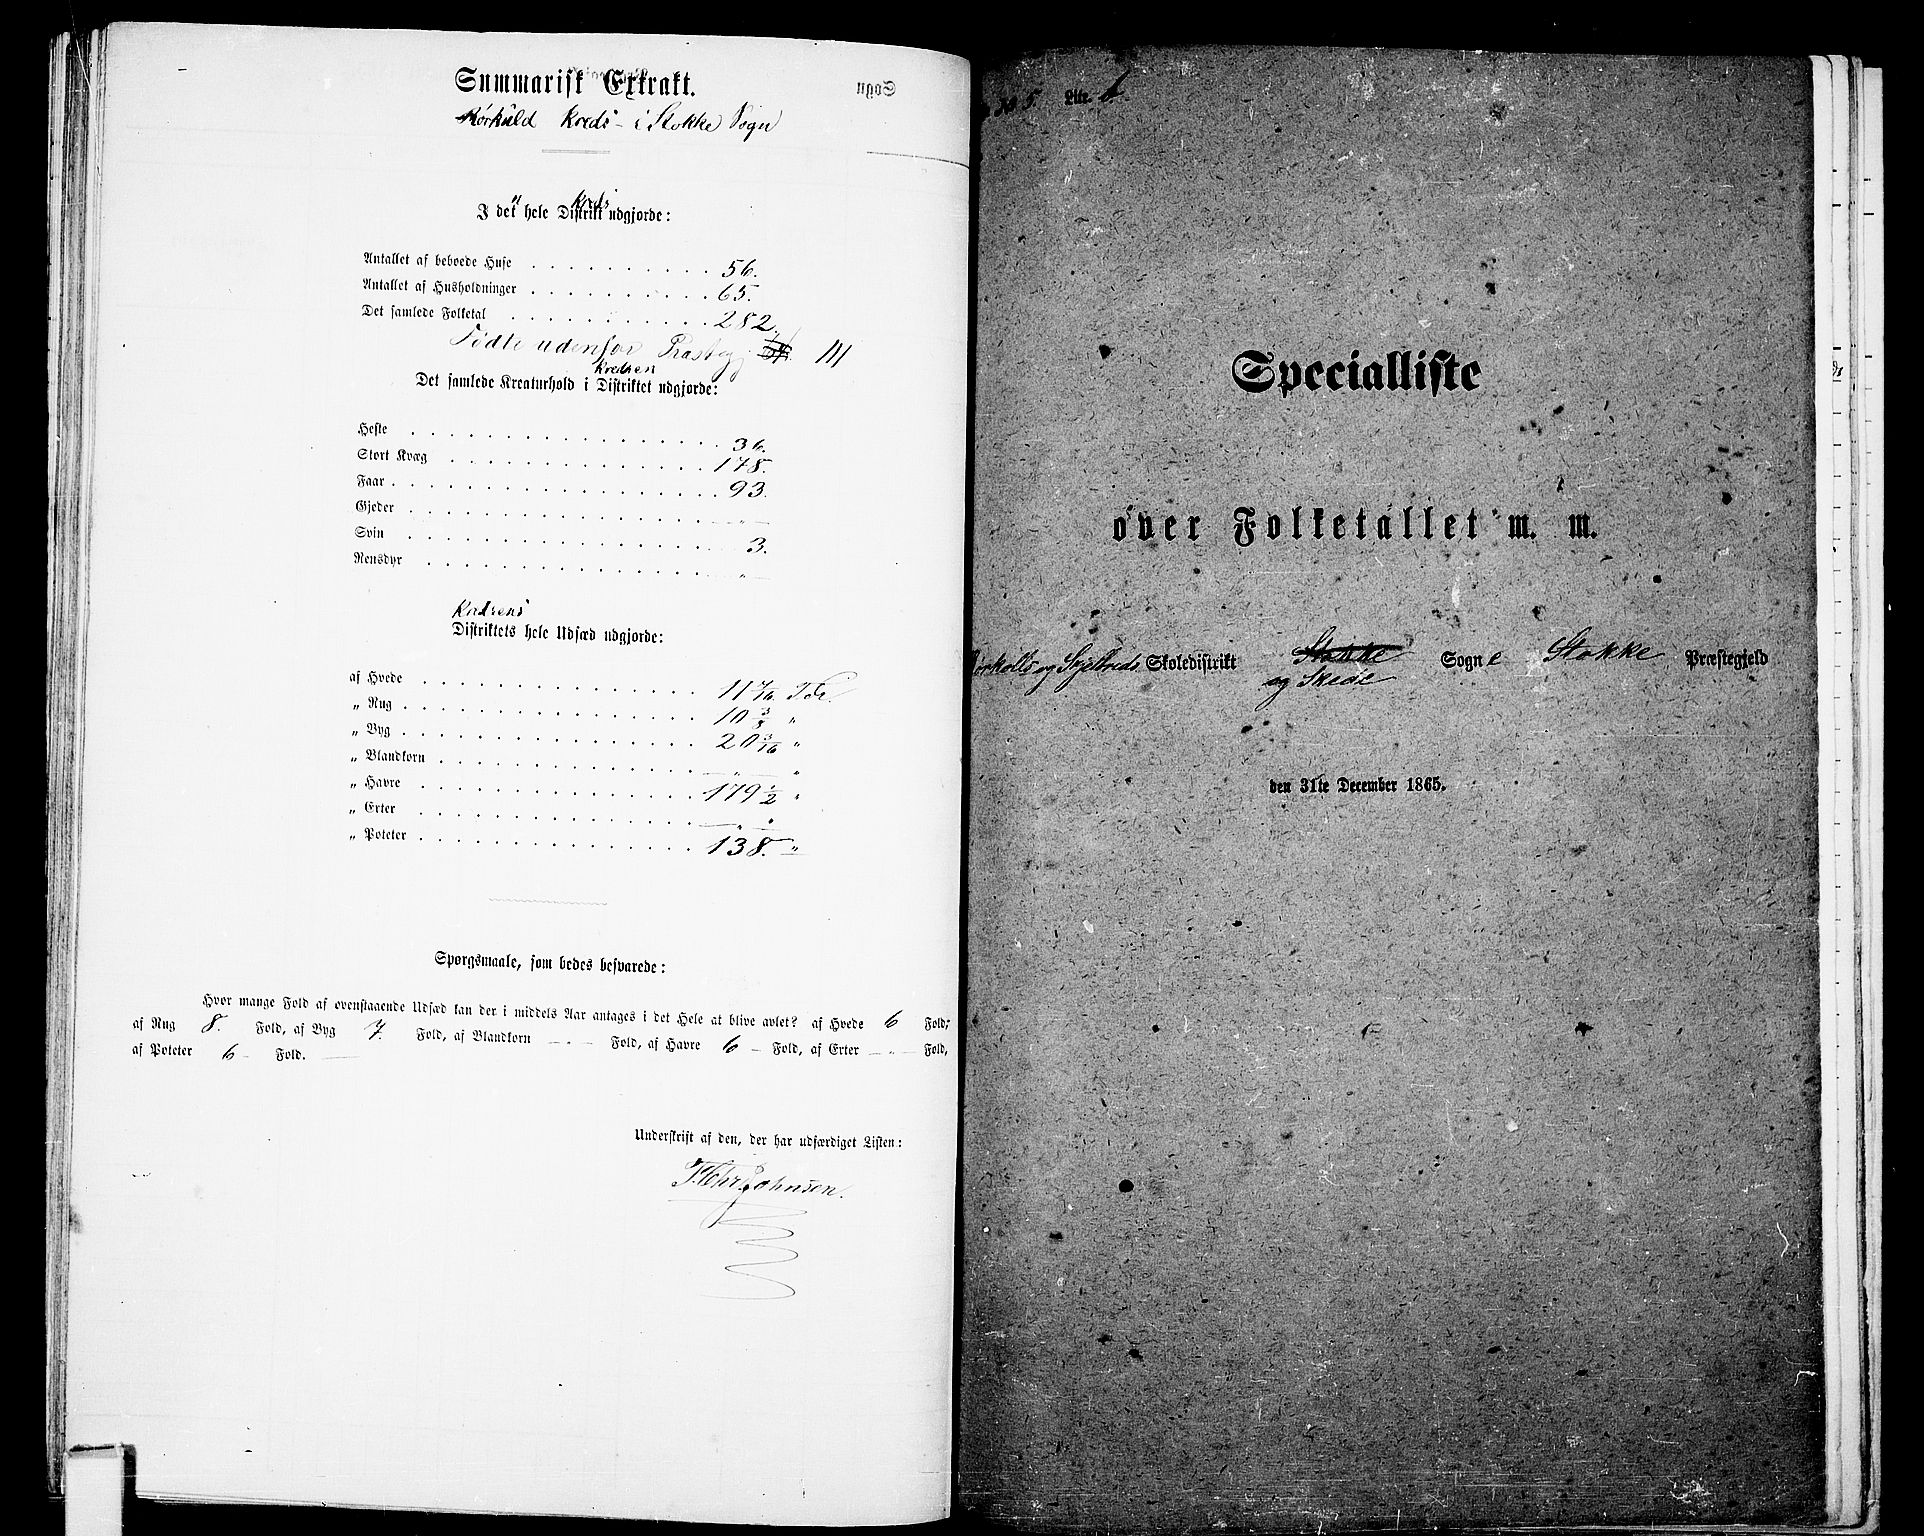 Summarisk Extrakt.
Rørkuld Kreds i Stokke Sogn
Kreds
I det hele Distrikt udgjorde:
Antallet af beboede Huse 56.
Antallet af Husholdninger 65.
Det samlede Folketal 282.
Fødte udenfor Præstegj 111
Kredsen
Det samlede Kreaturhold i Distriktet udgjorde:
Heste 36.
Stort Kvæg 178.
Faar 93.
Gjeder — „ —
Svin 3.
Rensdyr — „ —
Kredsens
Distriktets hele Udsæd udgjorde:
af Hvede 11 7/16 Tdr.
„ Rug 10 3/8 „
„ Byg 20 3/16 „
„ Blandkorn — „ — „
„ Havre 179 1/2 „
„ Erter — „ — „
„ Poteter 138. „
Spørgsmaale, som bedes besvarede:
Hvor mange Fold af ovenstaaende Udsæd kan der i middels Aar antages i det Hele at blive avlet? af Hvede 6 Fold;
af Rug 8. Fold, af Byg 7. Fold, af Blandkorn — „ — Fold, af Havre 6 — Fold, af Erter — „ — Fold,
af Poteter 6 — Fold.
Underskrift af den, der har udfærdiget Listen:
T. Chr. Johnsen.
No 5. Litr. b
Specialliste
over Folketallet m. m.
og Skoledistrikt Stokke Sogne Stokke Præstegjeld
og Skede
den 31te December 1865.